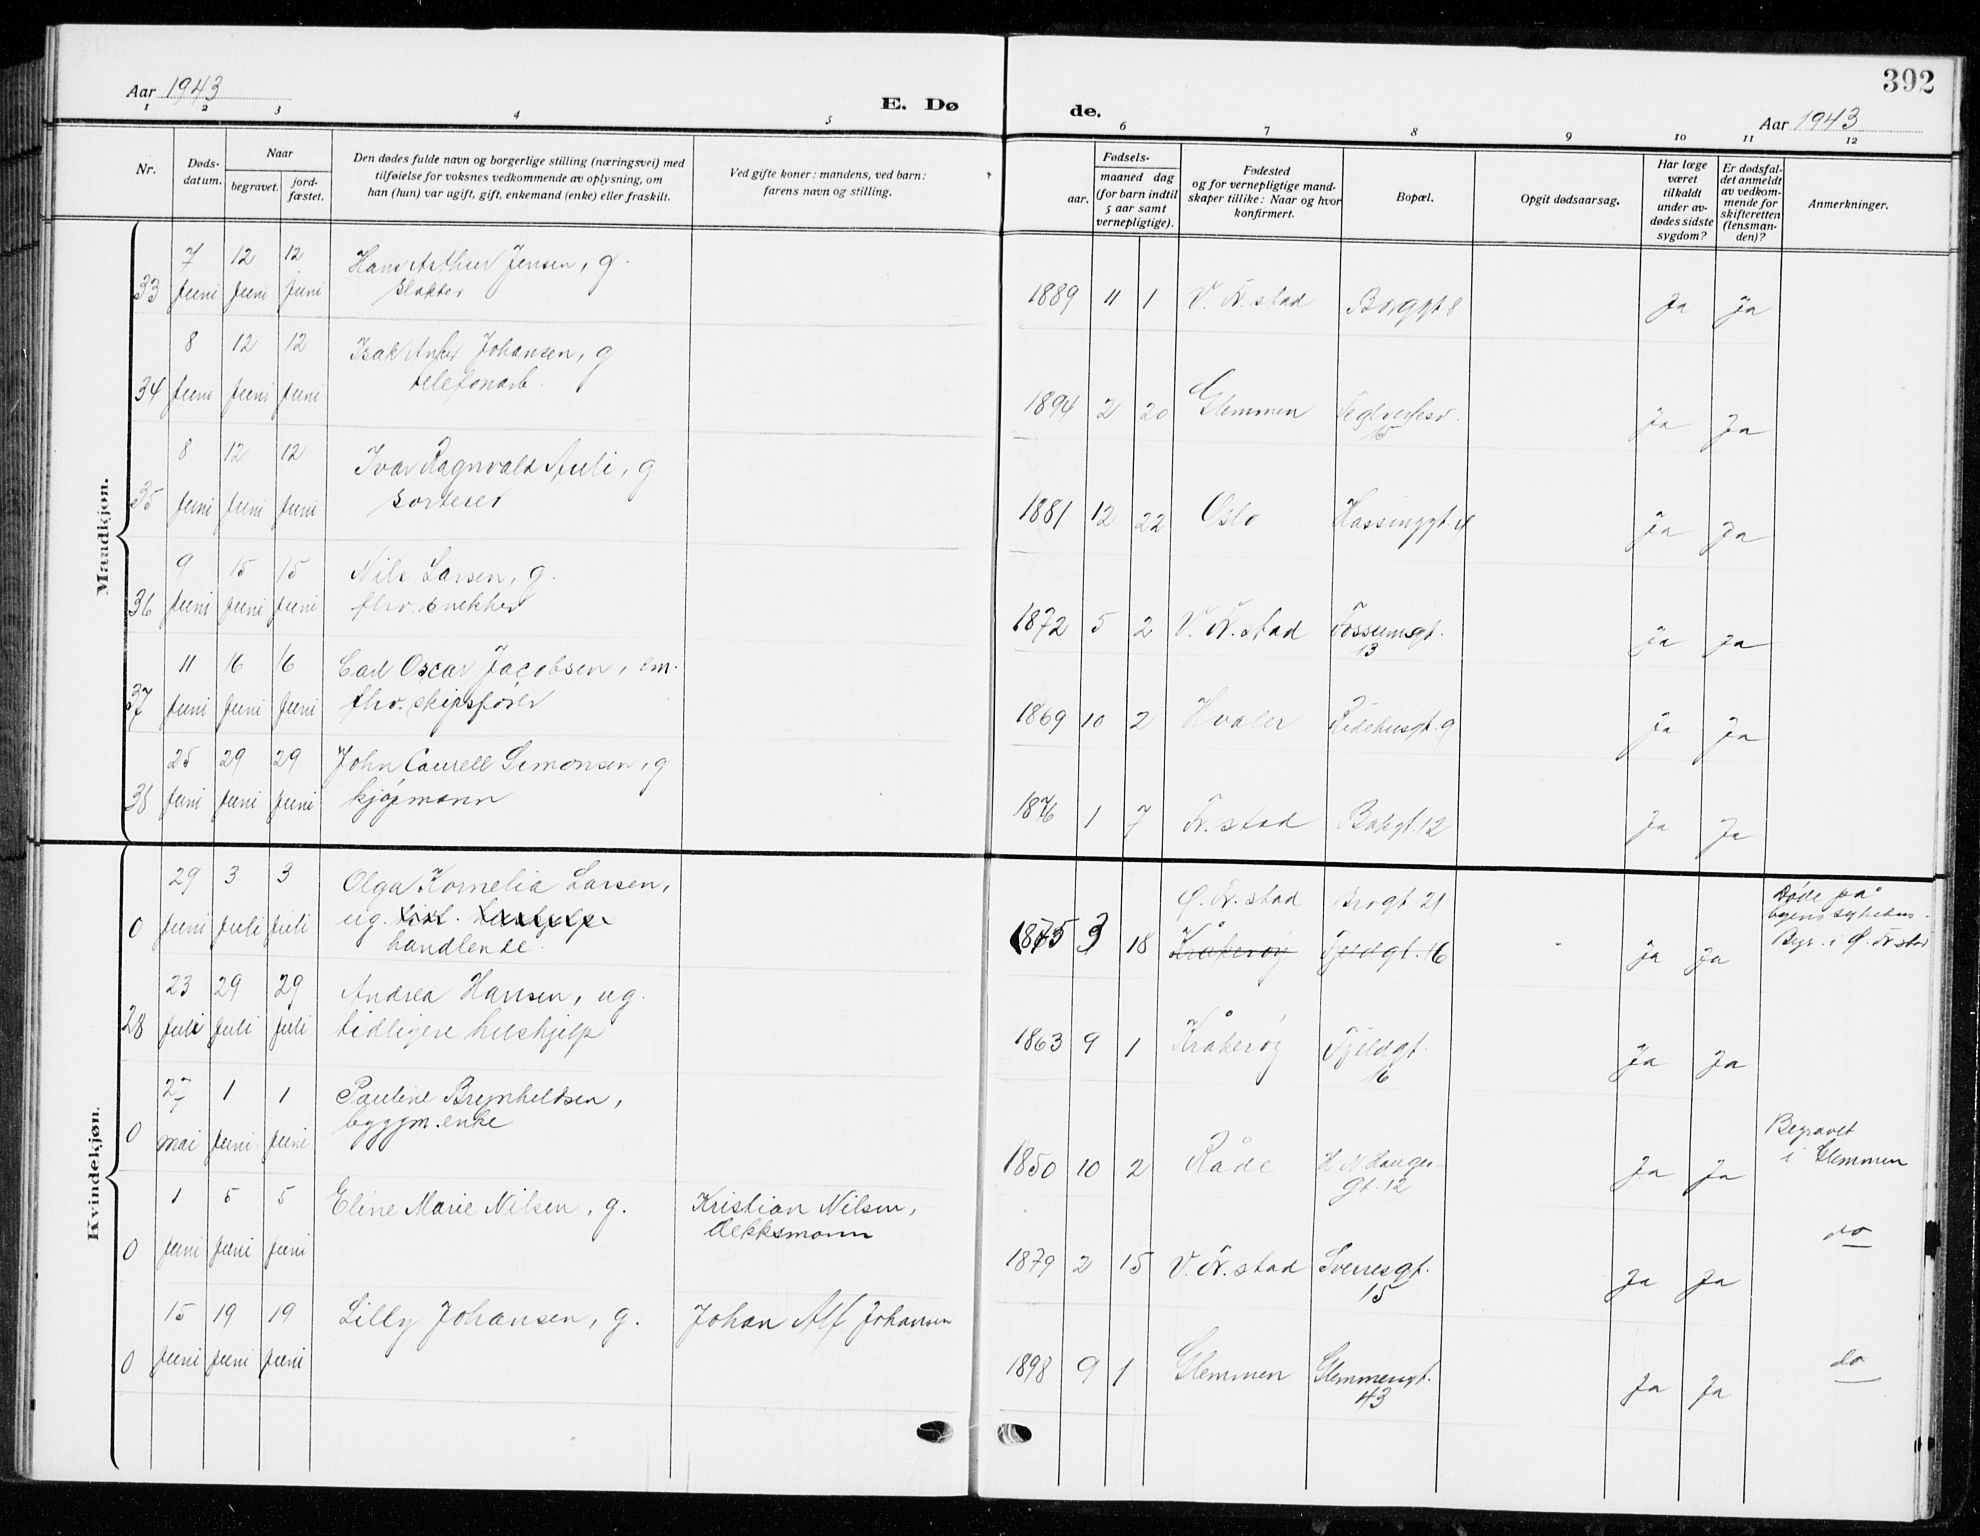 Aar 1943
E. Dø
de.
392
Aar 1943
1 2 3 4 5 6 7 8 9 10 11 12
Nr.
Døds-
datum.
Naar
begravet.
jord-
fæstet.
Den dødes fulde navn og borgerlige stilling (næringsvei) med
tilføielse for voksnes vedkommende av oplysning, om
han (hun) var ugift, gift, enkemand (enke) eller fraskilt.
Ved gifte koner: mandens, ved barn:
farens navn og stilling.
Fødsels-
aar.
maaned dag
(for barn indtil
5 aar samt
vernepligtige).
Fødested
og for vernepligtige mand-
skaper tillike: Naar og hvor
konfirmert.
Bopæl.
Opgit dødsaarsag.
Har læge
været
tilkaldt
under av-
dødes sidste
sygdom?
Er dødsfal-
det anmeldt
av vedkom-
mende for
skifteretten
(lensman-
den)?
Anmerkninger.
Mandkjøn.
7 12 12 Hans Arthur Jensen, g.
33 Juni Juni Juni slakter
1889 11 1 V. Fr.stad Borggt 8 Ja Ja
8 12 12 Isak Anker Johansen, g
34 Juni Juni Juni telefonarb.
1894 2 20 Glemmen Teglverksv. Ja Ja
15
8 12 12 Ivar Ragnvald Auli, g
35 Juni Juni Juni sorterer
1881 12 22 Oslo Hassinggt. 4 Ja Ja
9 15 15 Nils Larsen, g.
36 Juni Juni Juni fhv. snekker
1872 5 2 V. Fr.stad Fossumgt. Ja Ja
13
11 16 16 Carl Oscar Jacobsen, em.
37 Juni Juni Juni fhv. skipsfører
1869 10 2 Hvaler Ridehusgt. 9 Ja Ja
25 29 29 John Caurell Simonsen, g
38 Juni Juni Juni kjøpmann
1876 1 7 Fr.stad Bakgt. 12 Ja Ja
Kvindekjøn.
29 3 3 Olga Kornelia Larsen,
0 Juni Juli Juli ug. tidl. hushjelp
handlende.
Ø. Fr.stad Brogt 21
1875 3 18 Kråkerøy Fjeldgt. 16 Ja Ja
Døde på
byens sykehus.
Begr. i Ø. Fr.stad
23 29 29 Andrea Hansen, ug.
28 Juli Juli Juli tidligere hushjelp
1863 9 1 Kråkerøy Fjeldgt. Ja Ja
16
27 1 1 Pauline Brynheldsen,
0 mai Juni Juni byggm. enke
1850 10 2 Råde H N Hauges Ja Ja
gt. 12
Begravet
i Glemmen
1 5 5 Eline Marie Nilsen, g. Kristian Nilsen,
0 Juni Juni Juni dekksmann
1879 2 15 V. Fr.stad Sverresgt. Ja Ja do
15
15 19 19 Lilly Johansen, g. Johan Alf Johansen
0 Juni Juni Juni
1898 9 1 Glemmen Glemmengt. Ja Ja do
43